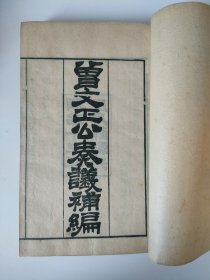 曾文正公奏議補編